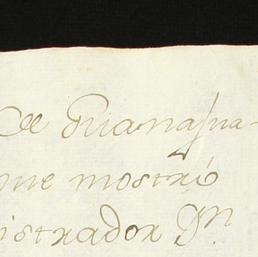 de Guanajua-
me mostró
istrador Dn